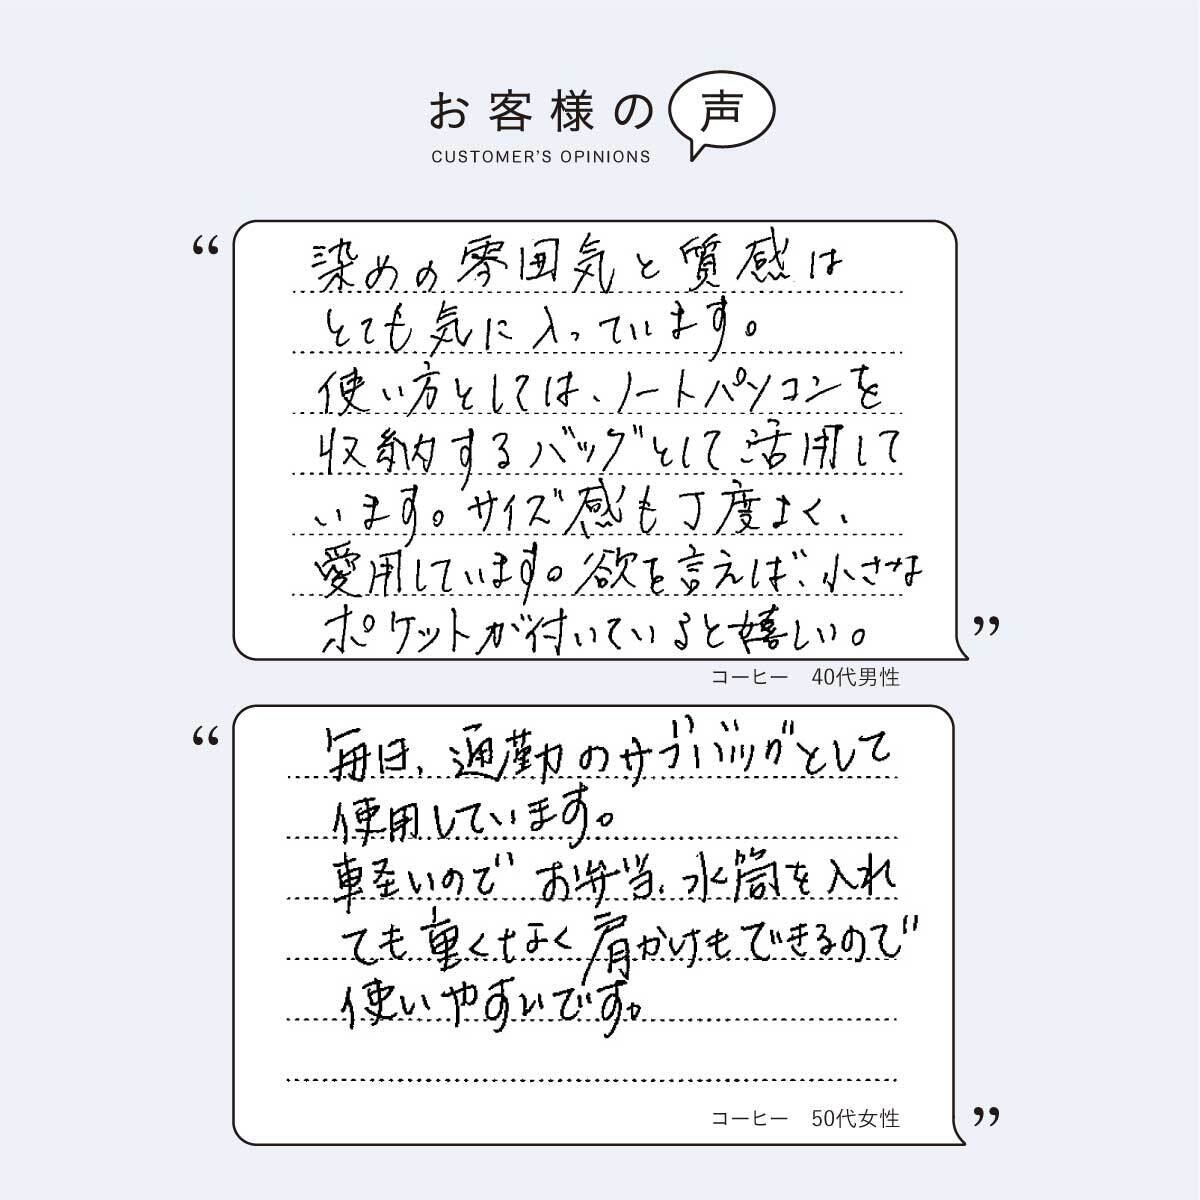 お客様の声
CUSTOMER'S OPINIONS
“
染めの雰囲気と質感は
とても気に入っています。
使い方としては、ノートパソコンを
収納するバッグとして活用して
います。サイズ感も丁度よく、
愛用しています。欲を言えば、小さな
ポケットが付いていると嬉しい。
”
コーヒー　40代男性
“
毎日、通勤のサブバッグとして
使用しています。
軽いので お弁当、水筒を入れ
ても重くなく肩かけもできるので
使いやすいです。
コーヒー　50代女性
”